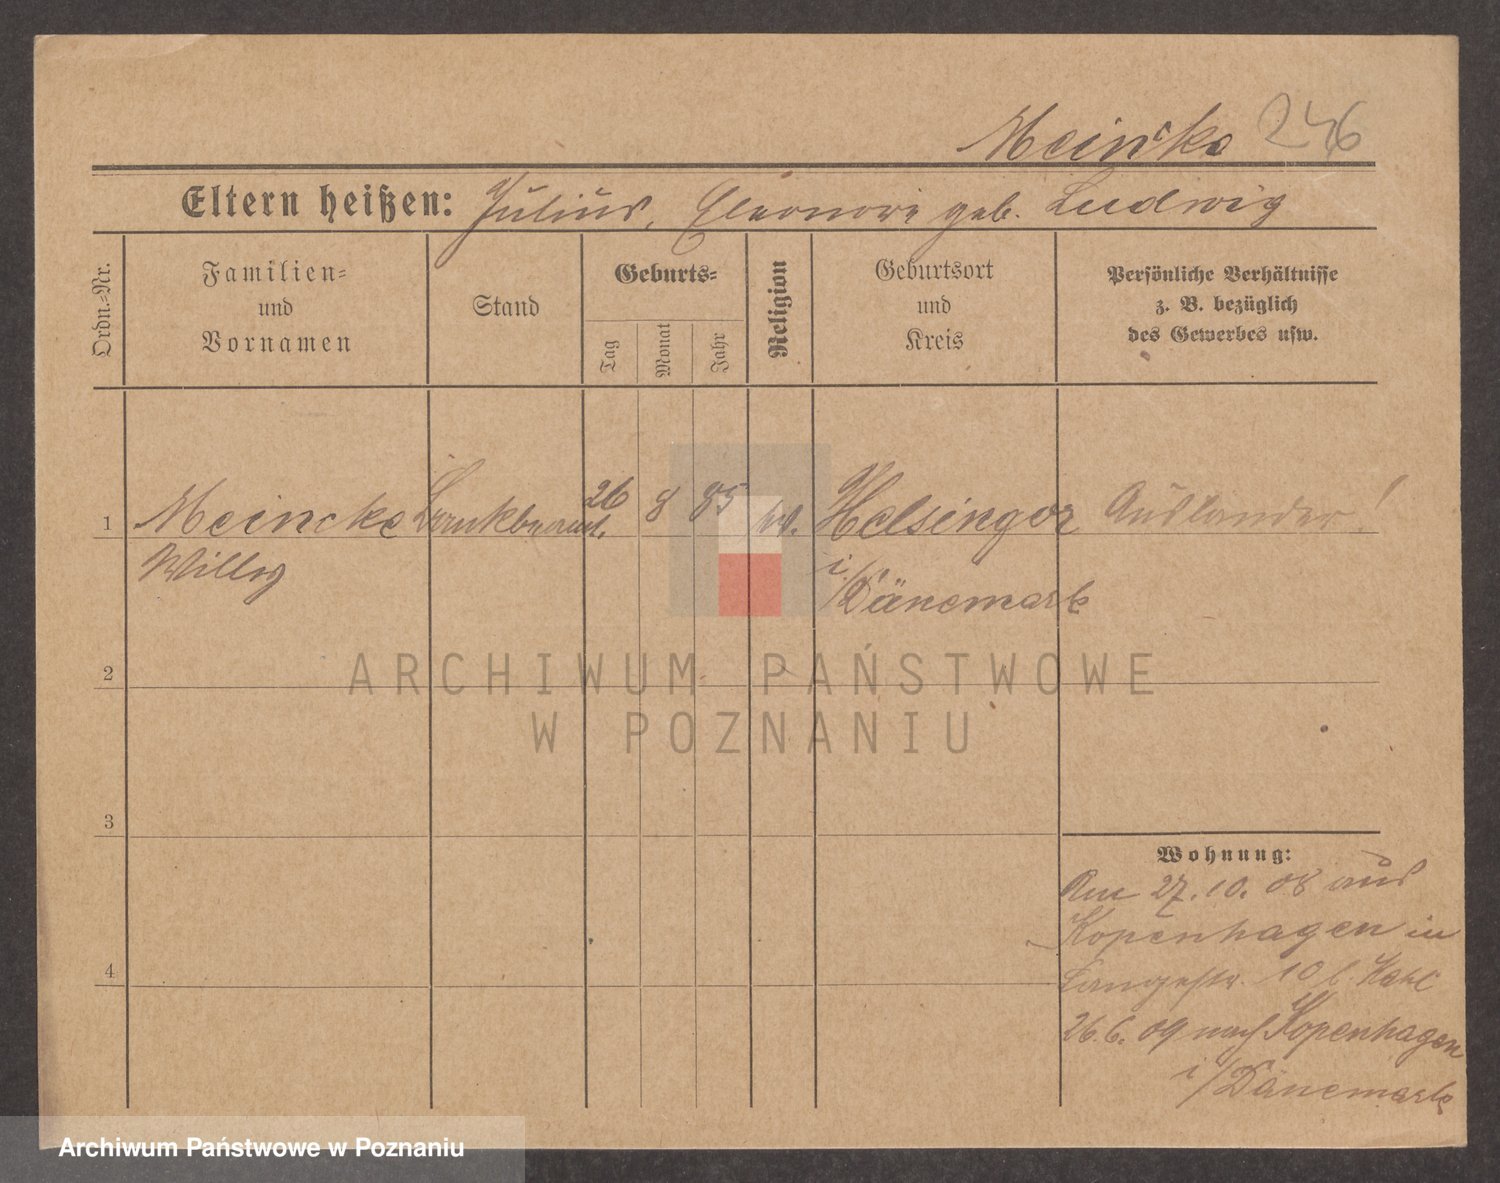 Meincke 246
Eltern heißen: Julius, Eleonore geb. Ludwig
Ordn.-Nr.
Familien-
und
Vornamen
Stand
Geburts-
Tag
Monat
Jahr
Religion
Geburtsort
und
Kreis
Persönliche Verhältnisse
z. B. bezüglich
des Gewerbes usw.
1 Meincke Bankbeamt. 26 8 85 Helsingör Ausländer!
Willy i/Dänemark
2
3
4
Wohnung:
Am 27.10.08 aus
Kopenhagen in
Langestr. 10 b.
26.6.09 nach Kopenhagen
i/Dänemark
ARCHIWUM PAŃSTWOWE
W POZNANIU
Archiwum Państwowe w Poznaniu